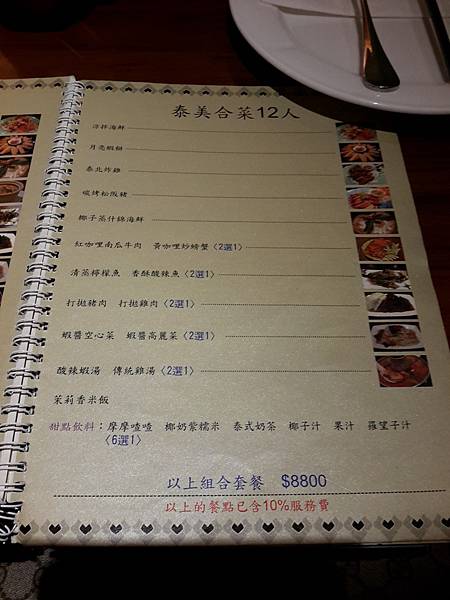 泰美合菜12人
涼拌海鮮
月亮蝦餅
泰北炸雞
碳烤松阪豬
椰子蒸什錦海鮮
紅咖哩南瓜牛肉 黃咖哩炒螃蟹〈2選1〉
清蒸檸檬魚 香酥酸辣魚〈2選1〉
打拋豬肉 打拋雞肉〈2選1〉
蝦醬空心菜 蝦醬高麗菜〈2選1〉
酸辣蝦湯 傳統雞湯〈2選1〉
茉莉香米飯
甜點飲料：摩摩喳喳 椰奶紫糯米 泰式奶茶 椰子汁 果汁 羅望子汁
〈6選1〉
以上組合套餐 $8800
以上的餐點已含10%服務費